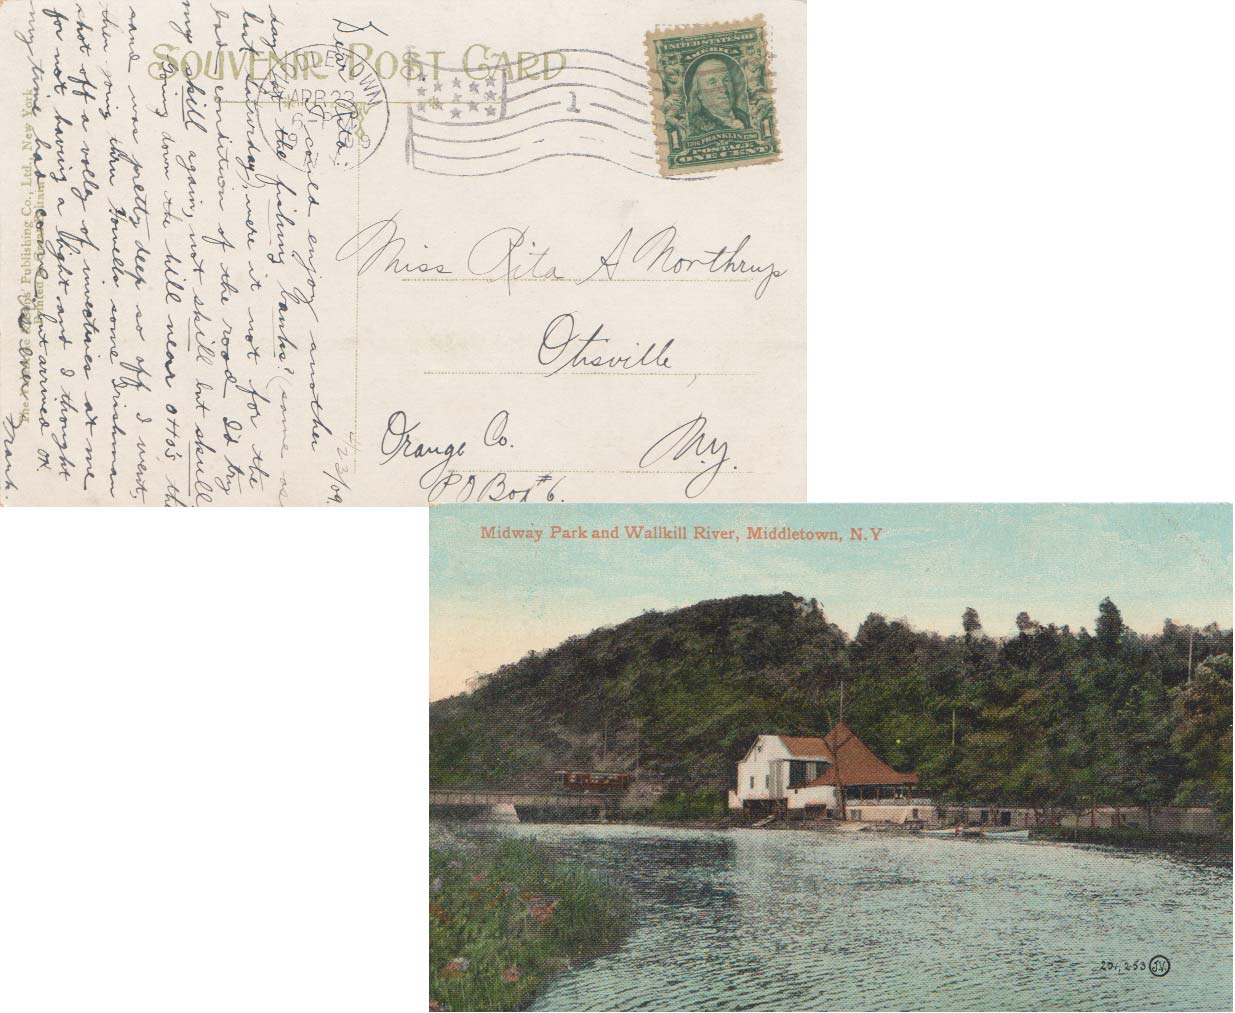 SOUVENIR POST CARD
MIDDLETOWN
APR 23
1
UNITED STATES OF AMERICA
1706 FRANKLIN 1790
1 POSTAGE 1
ONE CENT
Miss Rita A Northrup
Otisville,
Orange Co. N.y.
P O Box #6.
4/23/09.
Dear Rita:
I could enjoy another
day at the fishing banks? (same as
last Saturday), were it not for the
bad condition of the road I'd try
my skill again, not skill but skull
Going down the hill near OHO's, the
sand was pretty deep so off I went,
then going thru Howells some Irishman
shot off a volly of invectives at me
for not having a light and I thought
my time had come, but arrived OK
Frank.
Publishing Co., Ltd., New York
Midway Park and Wallkill River, Middletown, N.Y
201,253 JV.